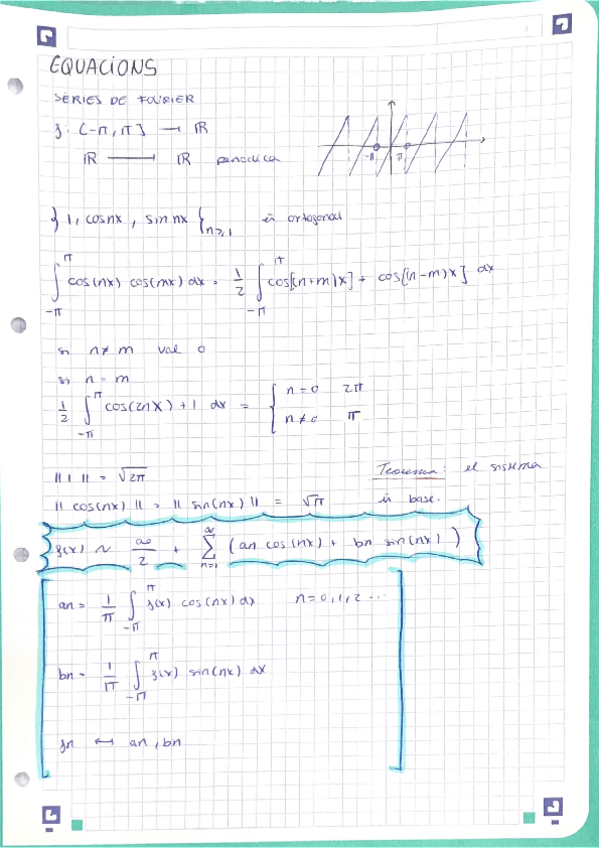 EQUACIONS
SÈRIES DE FOURIER
f: (-π, π] → ℝ
ℝ → ℝ periodica
-π π
{1, cosnx, sin nx}n≥1 és ortogonal
∫_{-π}^{π} cos(nx) cos(mx) dx = 1/2 ∫_{-π}^{π} cos[(n+m)x] + cos[(n-m)x] dx
si n≠m val 0
si n=m
1/2 ∫_{-π}^{π} cos(2nx)+1 dx = { n=0 2π
n≠0 π
||1|| = √2π
Teorema: el sistema
|| cos(nx) || = || sin(nx) || = √π
és base.
f(x) ~ a0/2 + ∑_{n=1}^{∞} (an cos(nx) + bn sin(nx))
an = 1/π ∫_{-π}^{π} f(x) cos(nx) dx n=0,1,2...
bn = 1/π ∫_{-π}^{π} f(x) sin(nx) dx
fn ↔ an, bn